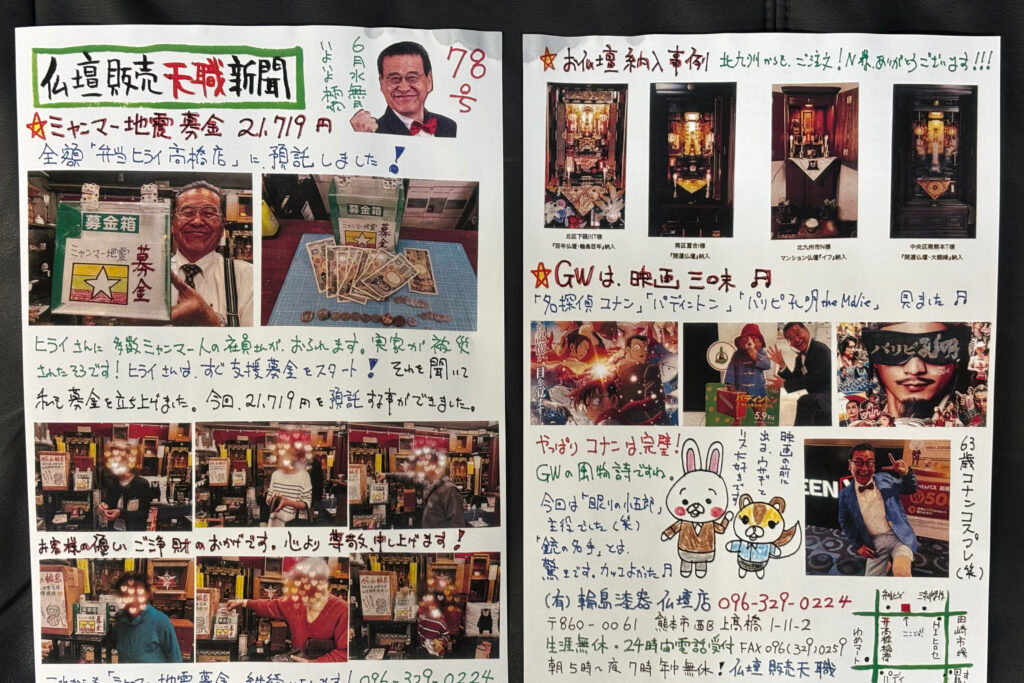 仏壇販売天職新聞
6月水無月
いよいよ
78号
☆ミャンマー地震募金 21,719円
全額「弁当ヒライ高橋店」に、預託しました!
募金箱
ミャンマー地震
募金
募金箱
ミャンマー地震
ヒライさんに多数ミャンマー人の社員さんが、おられます。実家が被災
されたそうです!ヒライさんは、すぐ支援募金をスタート!それを聞いて
私も募金を立ち上げました。今回、21,719円を預託す事ができました。
お客様の優しいご浄財のおかげです。心より尊敬、申し上げます!
これからも「ミャンマー地震募金」継続いたします! 096-329-0224
☆お仏壇納入事例 北九州からも、ご注文!N様、ありがとうございます!!!
北区下硯川T様
『百年仏壇・輪島百年』納入
南区富合I様
『開運仏壇』納入
北九州市N様
マンション仏壇『イフ』納入
中央区南熊本T様
『開運仏壇・大観峰』納入
☆GWは、映画三昧♬
「名探偵コナン」「パディントン」「パリピ孔明 the Movie」見ました♬
パディントン
5.9
パリピ孔明
やっぱりコナンは、完璧!
GWの風物詩ですね。
今回は「眠りの小五郎」
主役でした(笑)
「銃の名手」とは、
驚きです。カッコよかった♬
映画の前に
出る、ウサギと
リス大好きです
63歳コナンコスプレ(笑)
(有)輪島漆器仏壇店 096-329-0224
〒860-0061 熊本市西区上高橋1-11-2
生涯無休・24時間電話受付 FAX096(329)0259
朝5時~夜7時年中無休!仏壇販売天職
ここ!
田崎市場